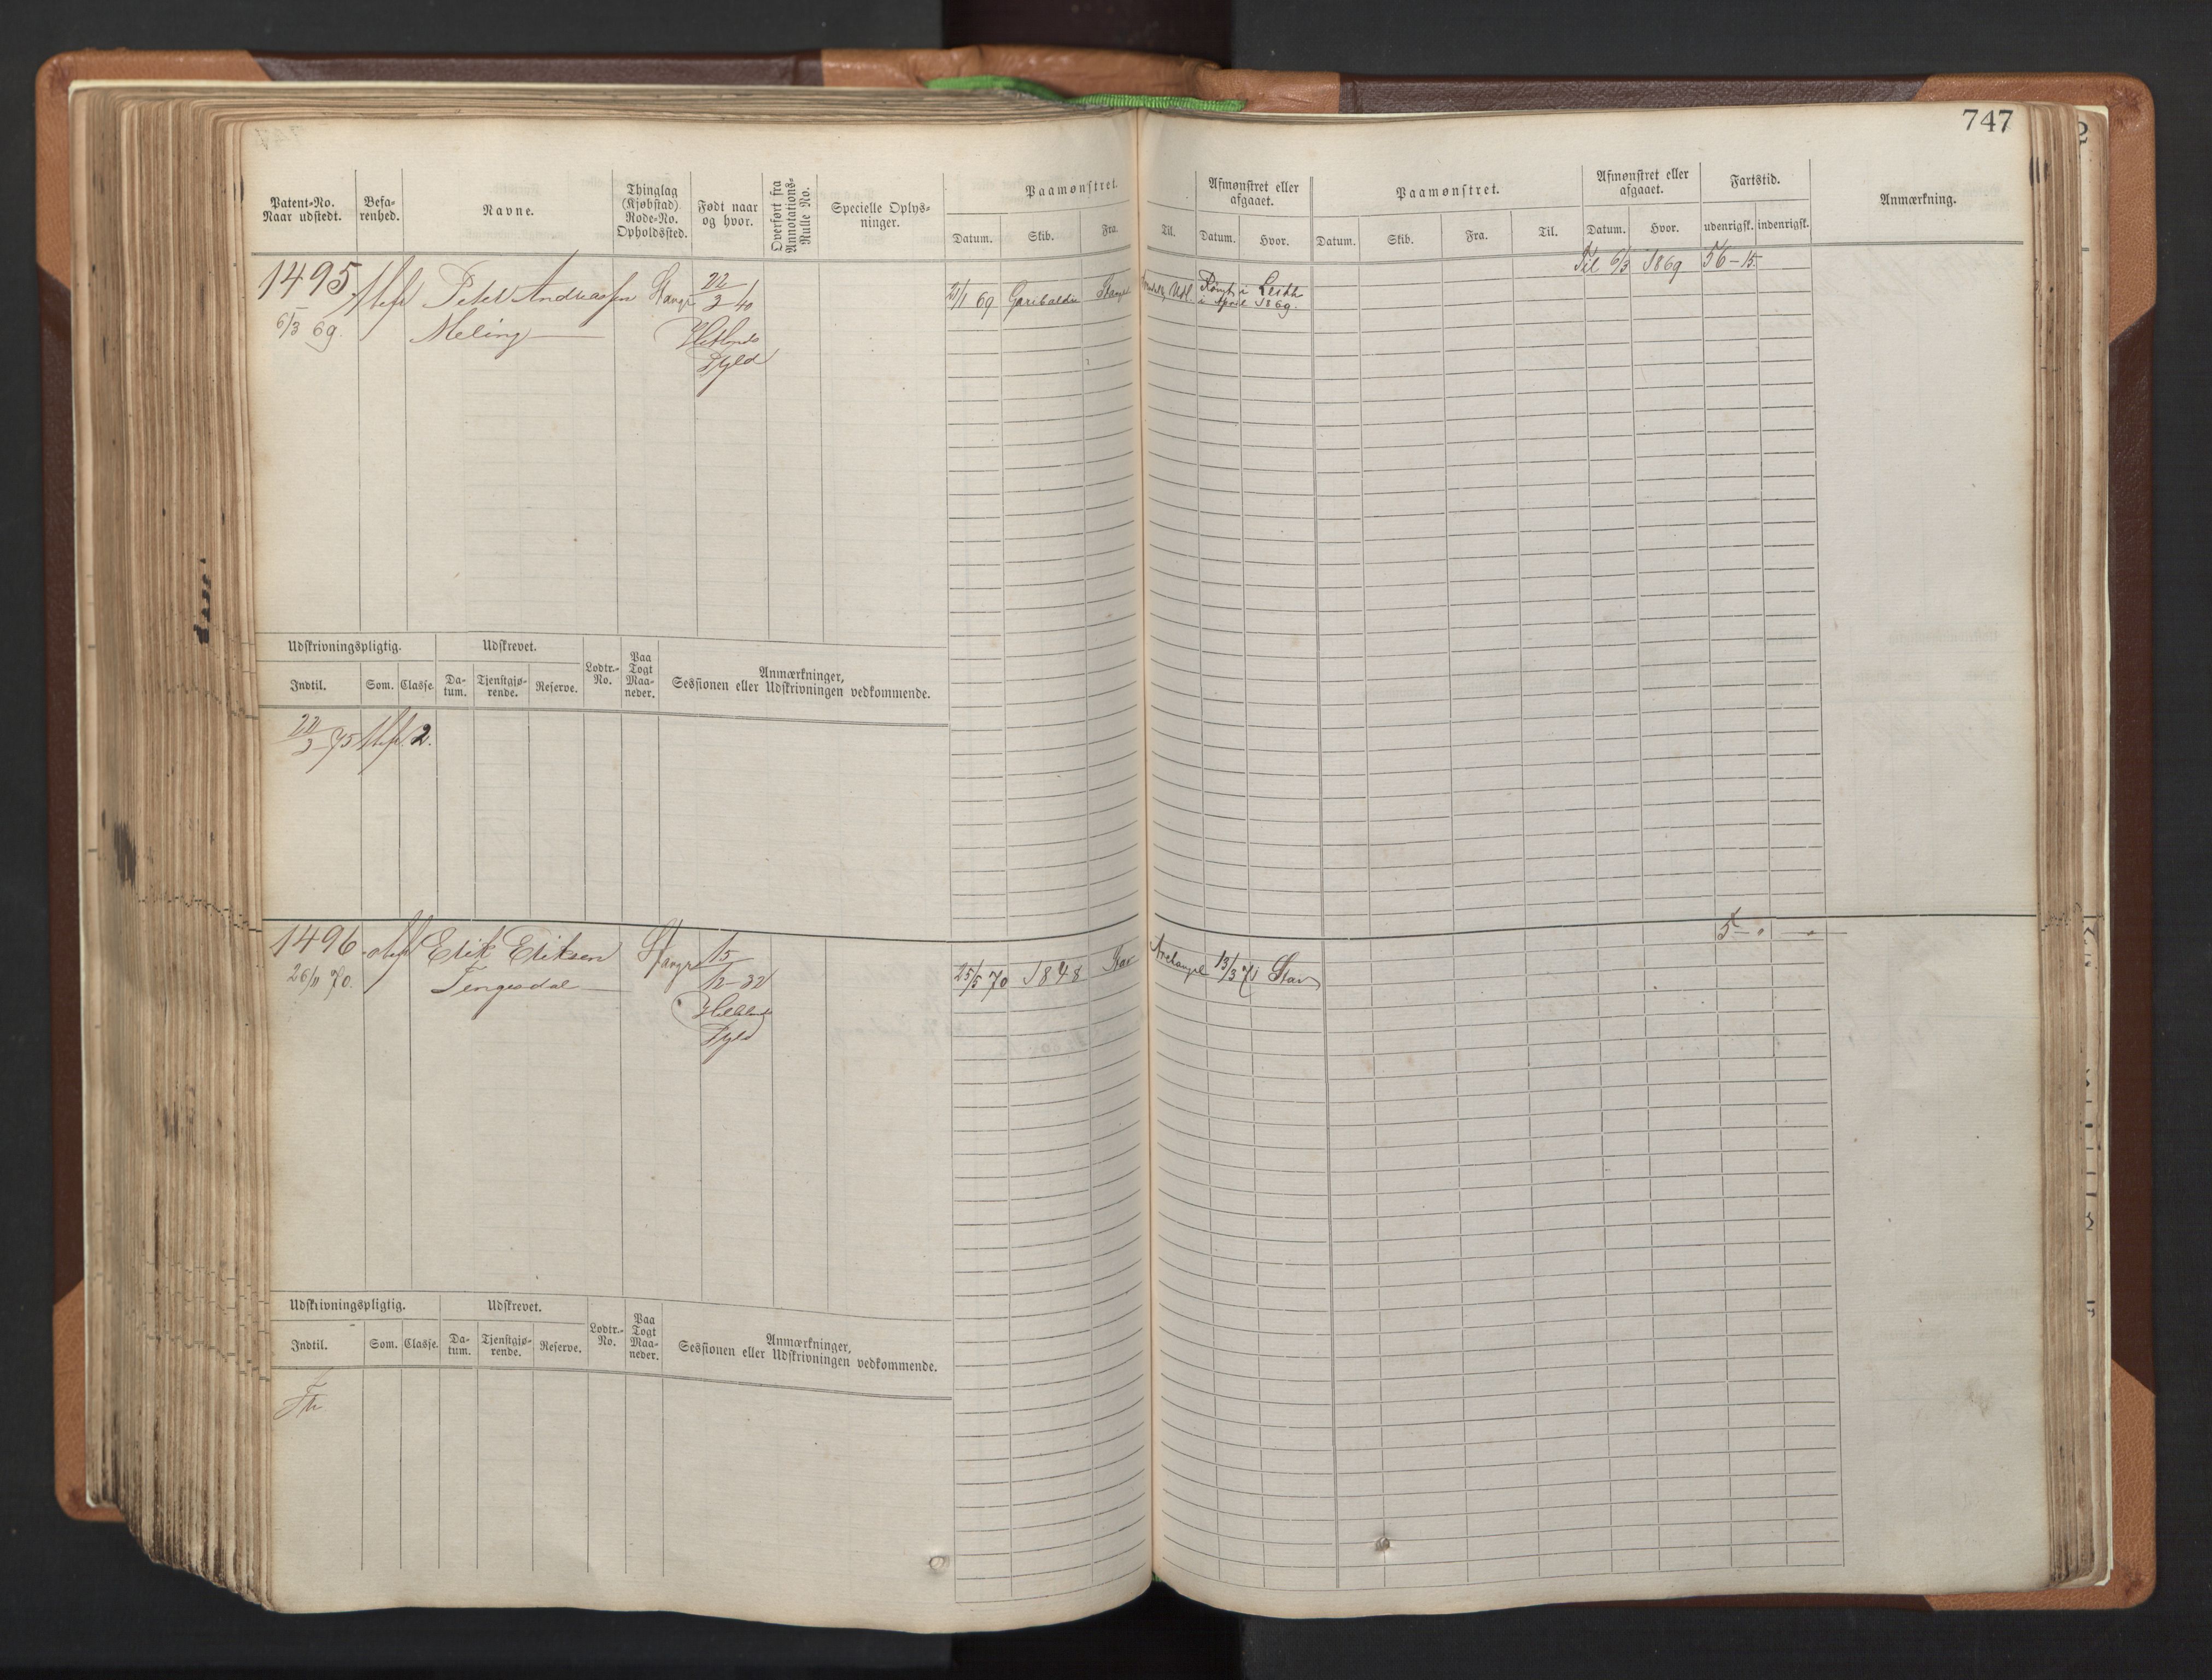 747
Patent-No.
Naar udstedt.
Befa-
renhed.
Navne.
Thinglag
(Kjøbstad)
Rode-No.
Opholdssted.
Født naar
og hvor.
Overført fra
Annotations-
Rulle No.
Specielle Oplys-
ninger.
Paamønstret.
Datum.
Skib.
Fra.
Til.
Afmønstret eller
afgaaet.
Datum.
Hvor.
Paamønstret.
Datum.
Skib.
Fra.
Til.
Afmønstret eller
afgaaet.
Datum.
Hvor.
Fartstid.
udenrigsk.
indenrigsk.
Anmærkning.
Til 6/3 1869 56-15.
1495
6/3 69.
Peter Andreassen
Meling
Stavgr
22/3 40
Hetlands
Pgld
21/1 69 Garibaldi Stavgr
Udl. Rømt i Leith
i April 1869.
Udskrivningspligtig.
Indtil.
Som.
Classe.
Udskrevet.
Da-
tum.
Tjenstgjø-
rende.
Reserve.
Lodtr.-
No.
Paa
Togt
Maa-
neder.
Anmærkninger,
Sessionen eller Udskrivningen vedkommende.
22/3 75 2.
5
1496
26/11 70.
Erik Eriksen
Tengesdal
Stavgr
15/12-32
Pgld
25/5 70 1848 Stav
Archangel 13/3 71 Stav
Udskrivningspligtig.
Indtil.
Som.
Classe.
Udskrevet.
Da-
tum.
Tjenstgjø-
rende.
Reserve.
Lodtr.-
No.
Paa
Togt
Maa-
neder.
Anmærkninger,
Sessionen eller Udskrivningen vedkommende.